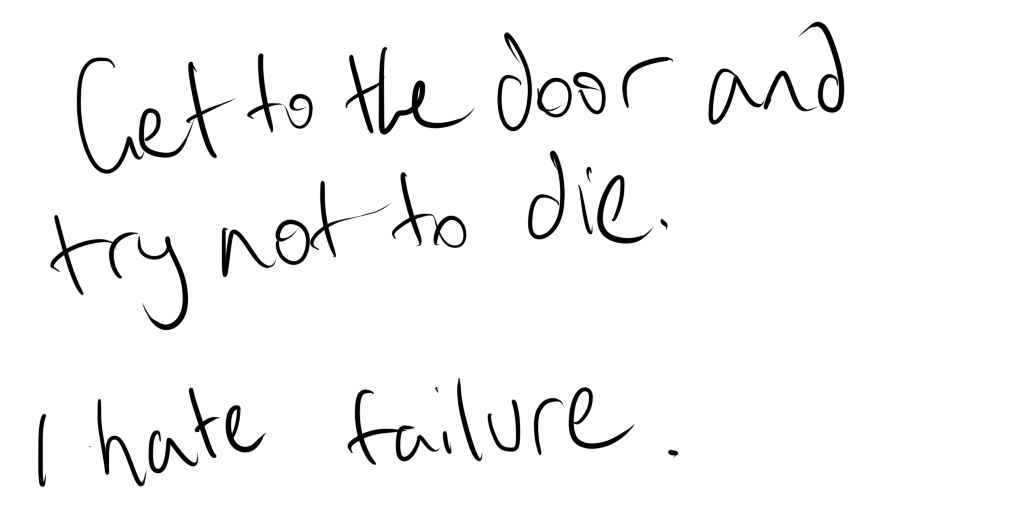 Get to the door and
try not to die.
I hate failure.